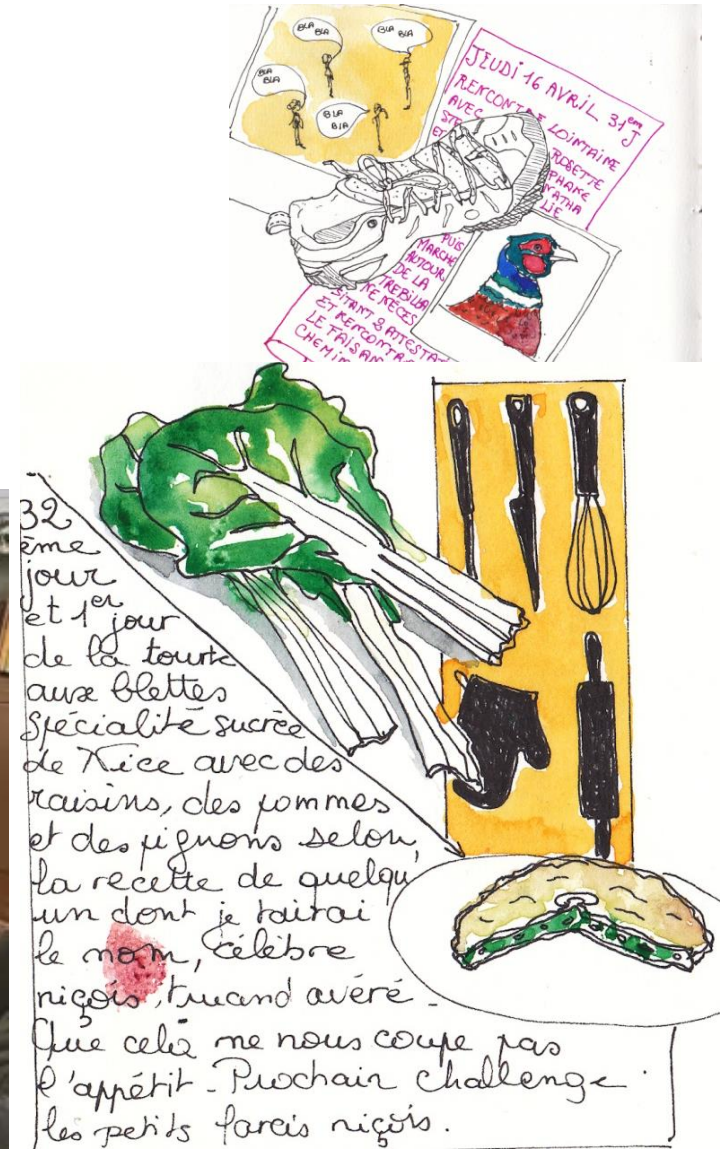 BLA BLA
BLA BLA
BLA BLA
BLA BLA
JEUDI 16 AVRIL 31em J
RENCONTRE LOINTAINE
AVEC ROSETTE
PHANE
ET NATHA
LIE
PUIS
MARCHE
AUTOUR
DE LA
TREBILLA
NE NÉCES
SITANT 3 ATTESTAT
ET RENCONTR
LE FAISAN
CHEMIN
32
ème
jour
et 1er jour
de la tourte
aux blettes
spécialité sucrée
de Nice avec des
raisins, des pommes
et des pignons selon,
la recette de quelqu
un dont je tairai
le nom, célèbre
niçois, truand avéré -
Que celà ne nous coupe pas
l'appétit - Prochain challenge
les petits farcis niçois.